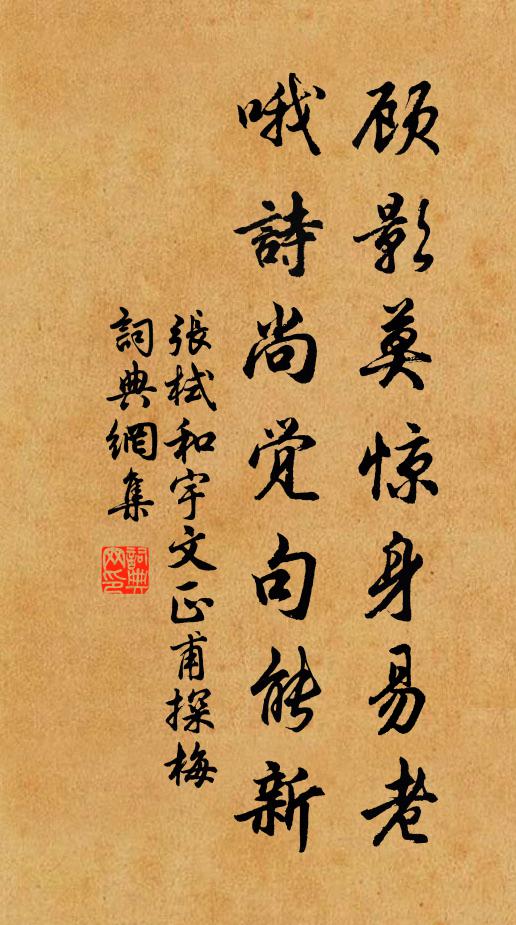 顾影莫惊身易老
哦詩尚觉句能新
張栻和宇文正甫探梅
詞典網集
詞典网印